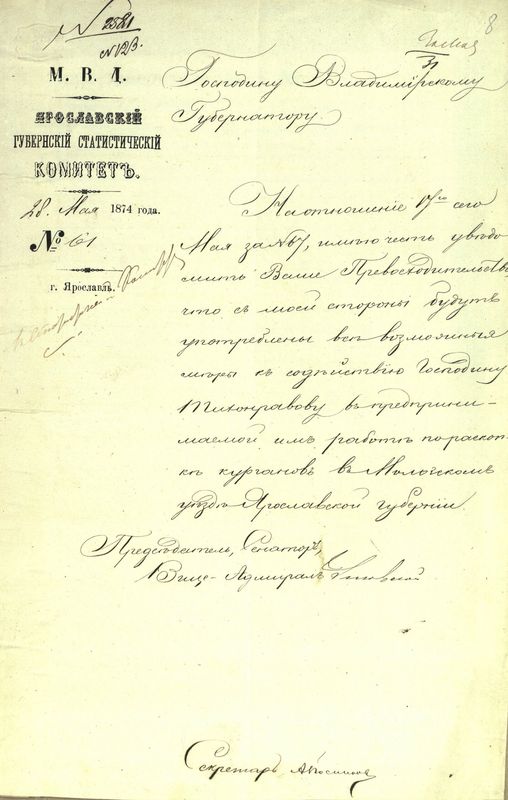 № 2581
№ 123.
8
31
М. В. Д.
ЯРОСЛАВСКІЙ
ГУБЕРНСКІЙ СТАТИСТИЧЕСКІЙ
КОМИТЕТЪ.
28 Мая 1874 года.
№ 61
г. Ярославль.
Господину Владимірскому
Губернатору.
На отношеніе 17го сего
Мая за № 67, имѣю честь увѣдо-
мить Ваше Превосходительство
что съ моей стороны будутъ
употреблены всѣ возможныя
мѣры къ содѣйствію Господину
Тихонравову въ предприни-
маемой имъ работѣ по раскоп-
кѣ кургановъ въ Мологскомъ
уѣздѣ Ярославской губерніи.
Предсѣдатель, Сенаторъ,
Вице-Адмиралъ Унковской
Секретарь